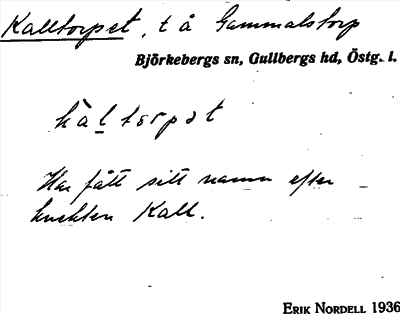 Kalltorpet, t å Gammalstorp
Björkebergs sn, Gullbergs hd, Östg. l.
kàltorpət
Har fått sitt namn efter
knekten Kall.
ERIK NORDELL 1936